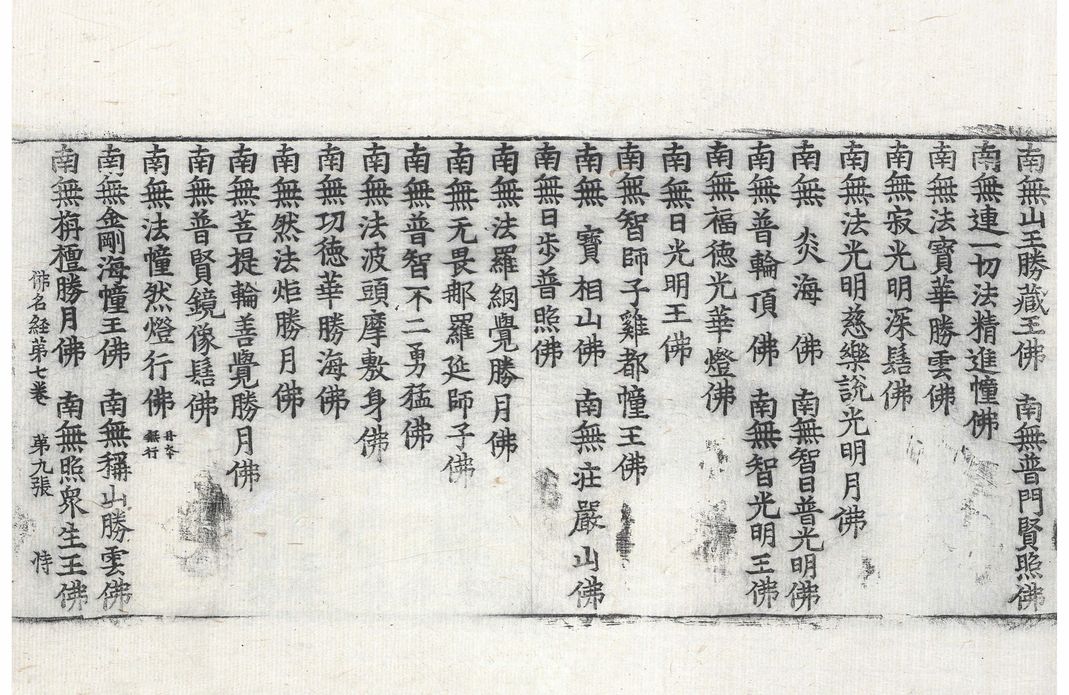 南無山王勝藏王佛　南無普門賢照佛
南無連一切法精進幢佛
南無法寶華勝雲佛
南無寂光明深髻佛
南無法光明慈樂說光明月佛
南無　炎海　佛　南無智日普光明佛
南無普輪頂　佛　南無智光明王佛
南無福德光華燈佛
南無日光明王佛
南無智師子雞都幢王佛
南無　寶相山佛　南無莊嚴山佛
南無日步普照佛
南無法羅網覺勝月佛
南無无畏那羅延師子佛
南無普智不二勇猛佛
南無法波頭摩敷身佛
南無功德華勝海佛
南無然法炬勝月佛
南無菩提輪善覺勝月佛
南無普賢鏡像髻佛
南無法幢然燈行佛　丹本無行
南無金剛海幢王佛　南無稱山勝雲佛
南無栴檀勝月佛　南無照衆生王佛
佛名経苐七卷　苐九張　恃